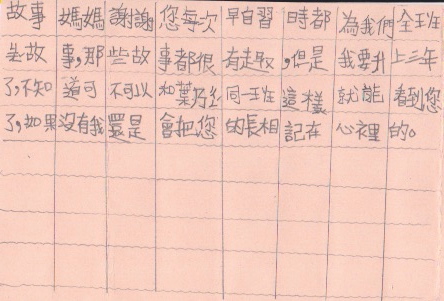 故事媽媽謝謝您每次早自習時都為我們全班
去故事,那些故事都很有走取,但是我要升上三年
了,不知道可不可以和葉乃生同一班這樣就能看到您
了,如果沒有我還是會把您的長相記在心裡的。